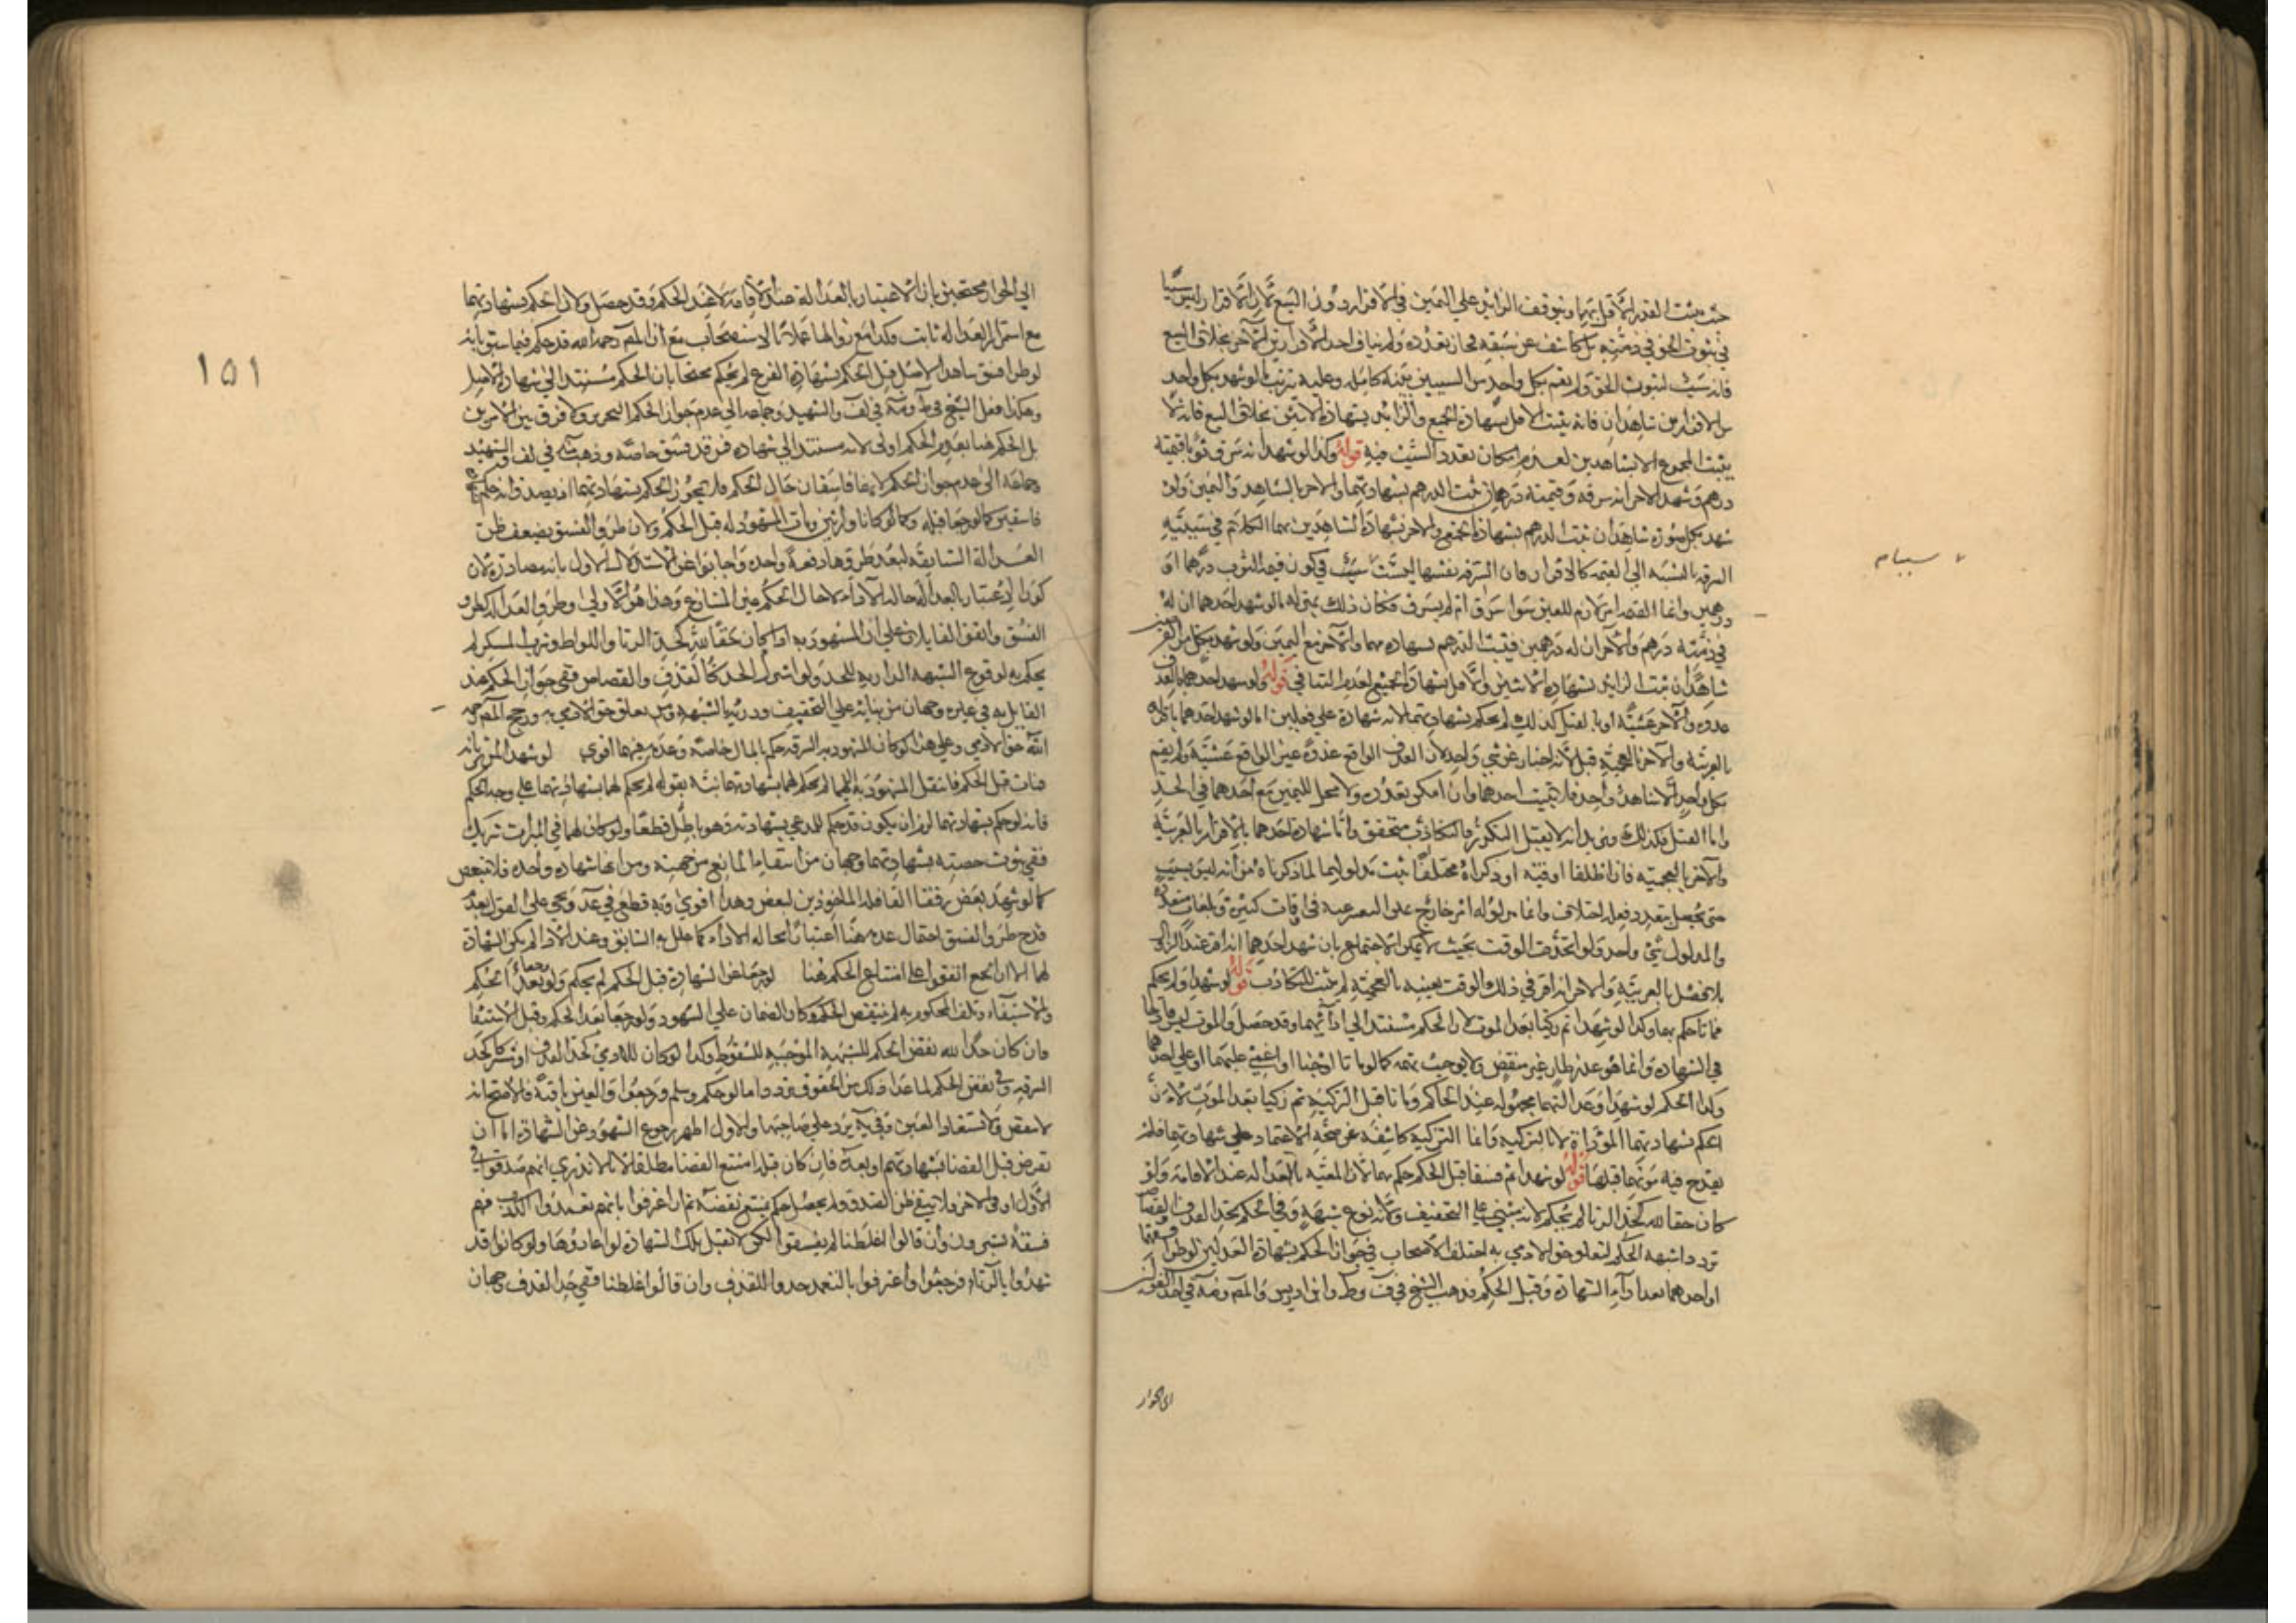 حيث يثبت القدر الاقل بهما ويتوقف الزائد على اليمين في الاقرار دون البيع لان الاقرار ليس سببا
في ثبوت الحق في ذمته بل كاشف عن سبقه فجاز تعدده ولم يناف احد الاقرارين الآخر بخلاف البيع
فانه سبب لثبوت الحق ولم يقم بكل واحد من السببين بينة كاملة وعليه يترتب ما لو شهد بكل واحد
من الاقرارين شاهدان فانه يثبت الاقل بشهادة الجميع والزائد بشهادة الاثنين بخلاف البيع فانه لا
يثبت المجموع الا بشاهدين لعدم امكان تعدد السبب فيه قوله وكذا لو شهد انه سرق ثوبا قيمته
درهم وشهد الآخر انه سرقه وقيمته درهمان ثبت الدرهم بشهادتهما والآخر بالشاهد واليمين ولو
شهد بكل صورة شاهدان ثبت الدرهم بشهادة الجميع والآخر بشهادة الشاهدين بهما الكلام في سببية
السرقة بالنسبة الى القيمة كالاقرار فان السرقة نفسها ليست سببا في كون قيمة الثوب درهما او
درهمين وانما القيمة امر لازم للعين سواء سرق ام لم يسرق فكان ذلك بمنزلة ما لو شهد احدهما ان له
في ذمته درهم والآخر ان له درهمين فيثبت الدرهم بشهادتهما والآخر مع اليمين ولو شهد بكل من
شاهدان ثبت الزائد بشهادة الاثنين والاقل بشهادة الجميع لعدم التنافي قوله ولو شهد احدهما بالقذف
غدوة والآخر عشية او بالقتل كذلك لم يحكم بشهادتهما لانه شهادة على فعلين اما لو شهد احدهما باقراره
بالعربية والآخر بالعجمية قبل لانه اخبار عن شيء واحد لان القذف الواقع غدوة غير الواقع عشية ولم يقم
بكل واحد الا شاهد واحد فلا يثبت احدهما وان امكن تعدده ولا محل لليمين مع احدهما في الحد
واما القتل فكذلك ويزيد انه لا يقبل التكرر فالتكاذب متحقق واما شهادة احدهما بالاقرار بالعربية
والآخر بالعجمية فان اطلقا او وقتا او ذكراه مختلفا ثبت مدلولهما لما ذكرناه من انه ليس بسبب
حتى يحصل بتعدد فعله اختلاف وانما مدلوله امر خارج يمكن التعبير عنه في اوقات كثيرة وبلغات متعددة
والمدلول شيء واحد ولو اتحدت الوقت بحيث لا يمكن الاجتماع بان شهد احدهما انه اقر عند الزوال
بلا فصل بالعربية والآخر انه اقر في ذلك الوقت بعينه بالعجمية لم يثبت للتكاذب قوله لو شهدا ولم يحكم
فماتا حكم بهما وكذا لو شهدا ثم زكيا بعد الموت لان الحكم مستند الى ادائهما وقد حصل والموت ليس قادحا
في الشهادة وانما هو عذر طار غير منقض ولا يوجب تهمة كما لو ماتا او جنا او اغمي عليهما او على احدهما
وكذا الحكم لو شهدا وعدالتهما مجهولة عند الحاكم وماتا قبل التزكية ثم زكيا بعد الموت لان
الحكم بشهادتهما المؤداة لا بالتزكية وانما التزكية كاشفة عن صحة الاعتماد على شهادتهما فلا
يقدح فيه موتهما قبلها قوله لو شهدا ثم فسقا قبل الحكم حكم بهما لان المعتبر بالعدالة عند الاقامة ولو
كان حقا لله كحد الزنا لم يحكم لانه مبني على التخفيف ولانه نوع شبهة وفي الحكم بحد القذف والقصاص
تردد اشبهه الحكم لتعلق حق الادمي به اختلف الاصحاب في جواز الحكم بشهادة العدلين لو طرا
او احدهما بعد اداء الشهادة وقبل الحكم فذهب الشيخ في ف وط وابن ادريس والمص وفة في احد القولين
الى الجواز
الى الجواز محتجين بان الاعتبار بالعدالة عند الاقامة لا عند الحكم وقد حصل ولان الحكم بشهادتهما
مع استمرار العدالة ثابت فكذا مع زوالها عملا بالاستصحاب مع ان المص رحمه الله قد حكم فيما سبق بانه
لو طرا فسق شاهد الاصل قبل الحكم بشهادة الفرع لم يحكم محتجا بان الحكم مستند الى شهادة الاصل
وهكذا فعل الشيخ في ط وفة في لف والشهيد وجماعة الى عدم جواز الحكم ولا فرق بين الامرين
بل الحكم هنا بعدم الحكم اولى لانه مستند الى شهادة من قد فسق خاصة وذهب فة في لف والشهيد
وجماعة الى عدم جواز الحكم لانهما فاسقان حال الحكم فلا يجوز الحكم بشهادتهما اذ يصدق انه حكم بشهادة
فاسقين كما لو رجعا قبله وكما لو كانا وارثين ومات المشهود له قبل الحكم ولان طرو الفسق يضعف ظن
العدالة السابقة لبعد طروها دفعة واحدة واجابوا عن الاستدلال الاول بانه مصادرة لان
كون الاعتبار بالعدالة حالة الاداء لا حال الحكم عين المتنازع وهذا هو الاولى وطرو العداوة كطرو
الفسق واتفق القايلان على ان المشهود به اذا كان حقا لله كحد الزنا واللواط وشرب المسكر لم
يحكم به لوقوع الشبهة الدارية للحد ولو اشترك الحد كالقذف والقصاص ففي جواز الحكم عند
القايل به في غيره وجهان من بنائه على التخفيف ودرئه بالشبهة ومن تعلق حق الادمي به ورجح المص رحمه
الله حق الادمي وعلى هذا لو كان المشهود به السرقة حكم بالمال خاصة وعدمه فيهما اقوى لو شهدا لمن يرثانه
فمات قبل الحكم فانتقل المشهود به اليهما لم يحكم لهما بشهادتهما نبه بقوله لم يحكم لهما بشهادتهما على وجه الحكم
فانه لو حكم بشهادتهما لزم ان يكون قد حكم للمدعي بشهادته وهو باطل قطعا ولو كان لهما في الميراث شريك
ففي ثبوت حصته بشهادتهما وجهان من انتفاء المانع من جهته ومن انها شهادة واحدة فلا تتبعض
كما لو شهد بعض رفقاء القافلة الماخوذين لبعض وهذا اقوى وبه قطع في عد ويجي على القول بعدم
قدح طرو الفسق احتمال عدمه هنا اعتبارا بحالة الاداء كما علل به السابق وعند الاداء لم يكن الشهادة
لهما الا ان الجمع اتفقوا على امتناع الحكم هنا لو رجعا عن الشهادة قبل الحكم لم يحكم ولو رجعا بعد الحكم
والاستيفاء وتلف المحكوم به لم ينقض الحكم وكان الضمان على الشهود ولو رجعا بعد الحكم وقبل الاستيفاء
فان كان حدا لله نقض الحكم للشبهة الموجبة للسقوط وكذا لو كان للادمي كحد القذف او مشتركا كحد
السرقة وفي نقض الحكم لما عدا ذلك من الحقوق تردد اما لو حكم وسلم ورجعوا والعين باقية فالاصح انه
لا ينقض ولا تستعاد العين وفي ية يرد على صاحبها والاول اظهر رجوع الشهود عن الشهادة اما ان
تفرض قبل القضا بشهادتهم او بعده فان كان قبله امتنع القضا مطلقا لانا لا ندري انهم صدقوا في
الاول او في الاخر ولا يبقى ظن الصدق ولم يحصل حكم يمتنع نقضه ثم ان اعترفوا بانهم تعمدوا الكذب فهم
فسقة يستبرون وان قالوا غلطنا لم يفسقوا لكن لا تقبل تلك الشهادة لو اعادوها ولو كانوا قد
شهدوا بالزناء فرجعوا واعترفوا بالتعمد حدوا للقذف وان قالوا غلطنا ففي حد القذف وجهان
١٥١